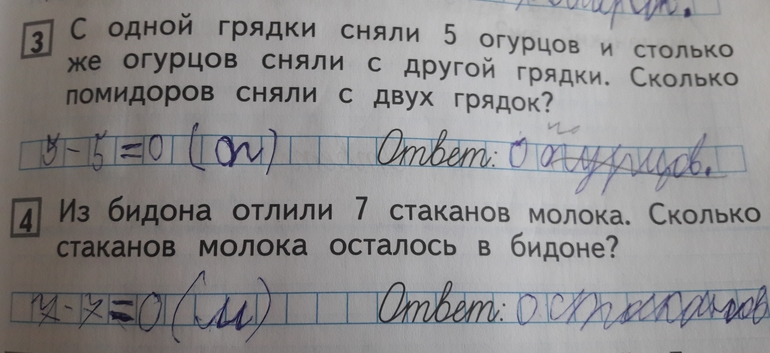 3 С одной грядки сняли 5 огурцов и столько
же огурцов сняли с другой грядки. Сколько
помидоров сняли с двух грядок?
по
5-5=0 (ог) Ответ: 0 огурцов.
4 Из бидона отлили 7 стаканов молока. Сколько
стаканов молока осталось в бидоне?
7-7=0 (м) Ответ: 0 стаканов